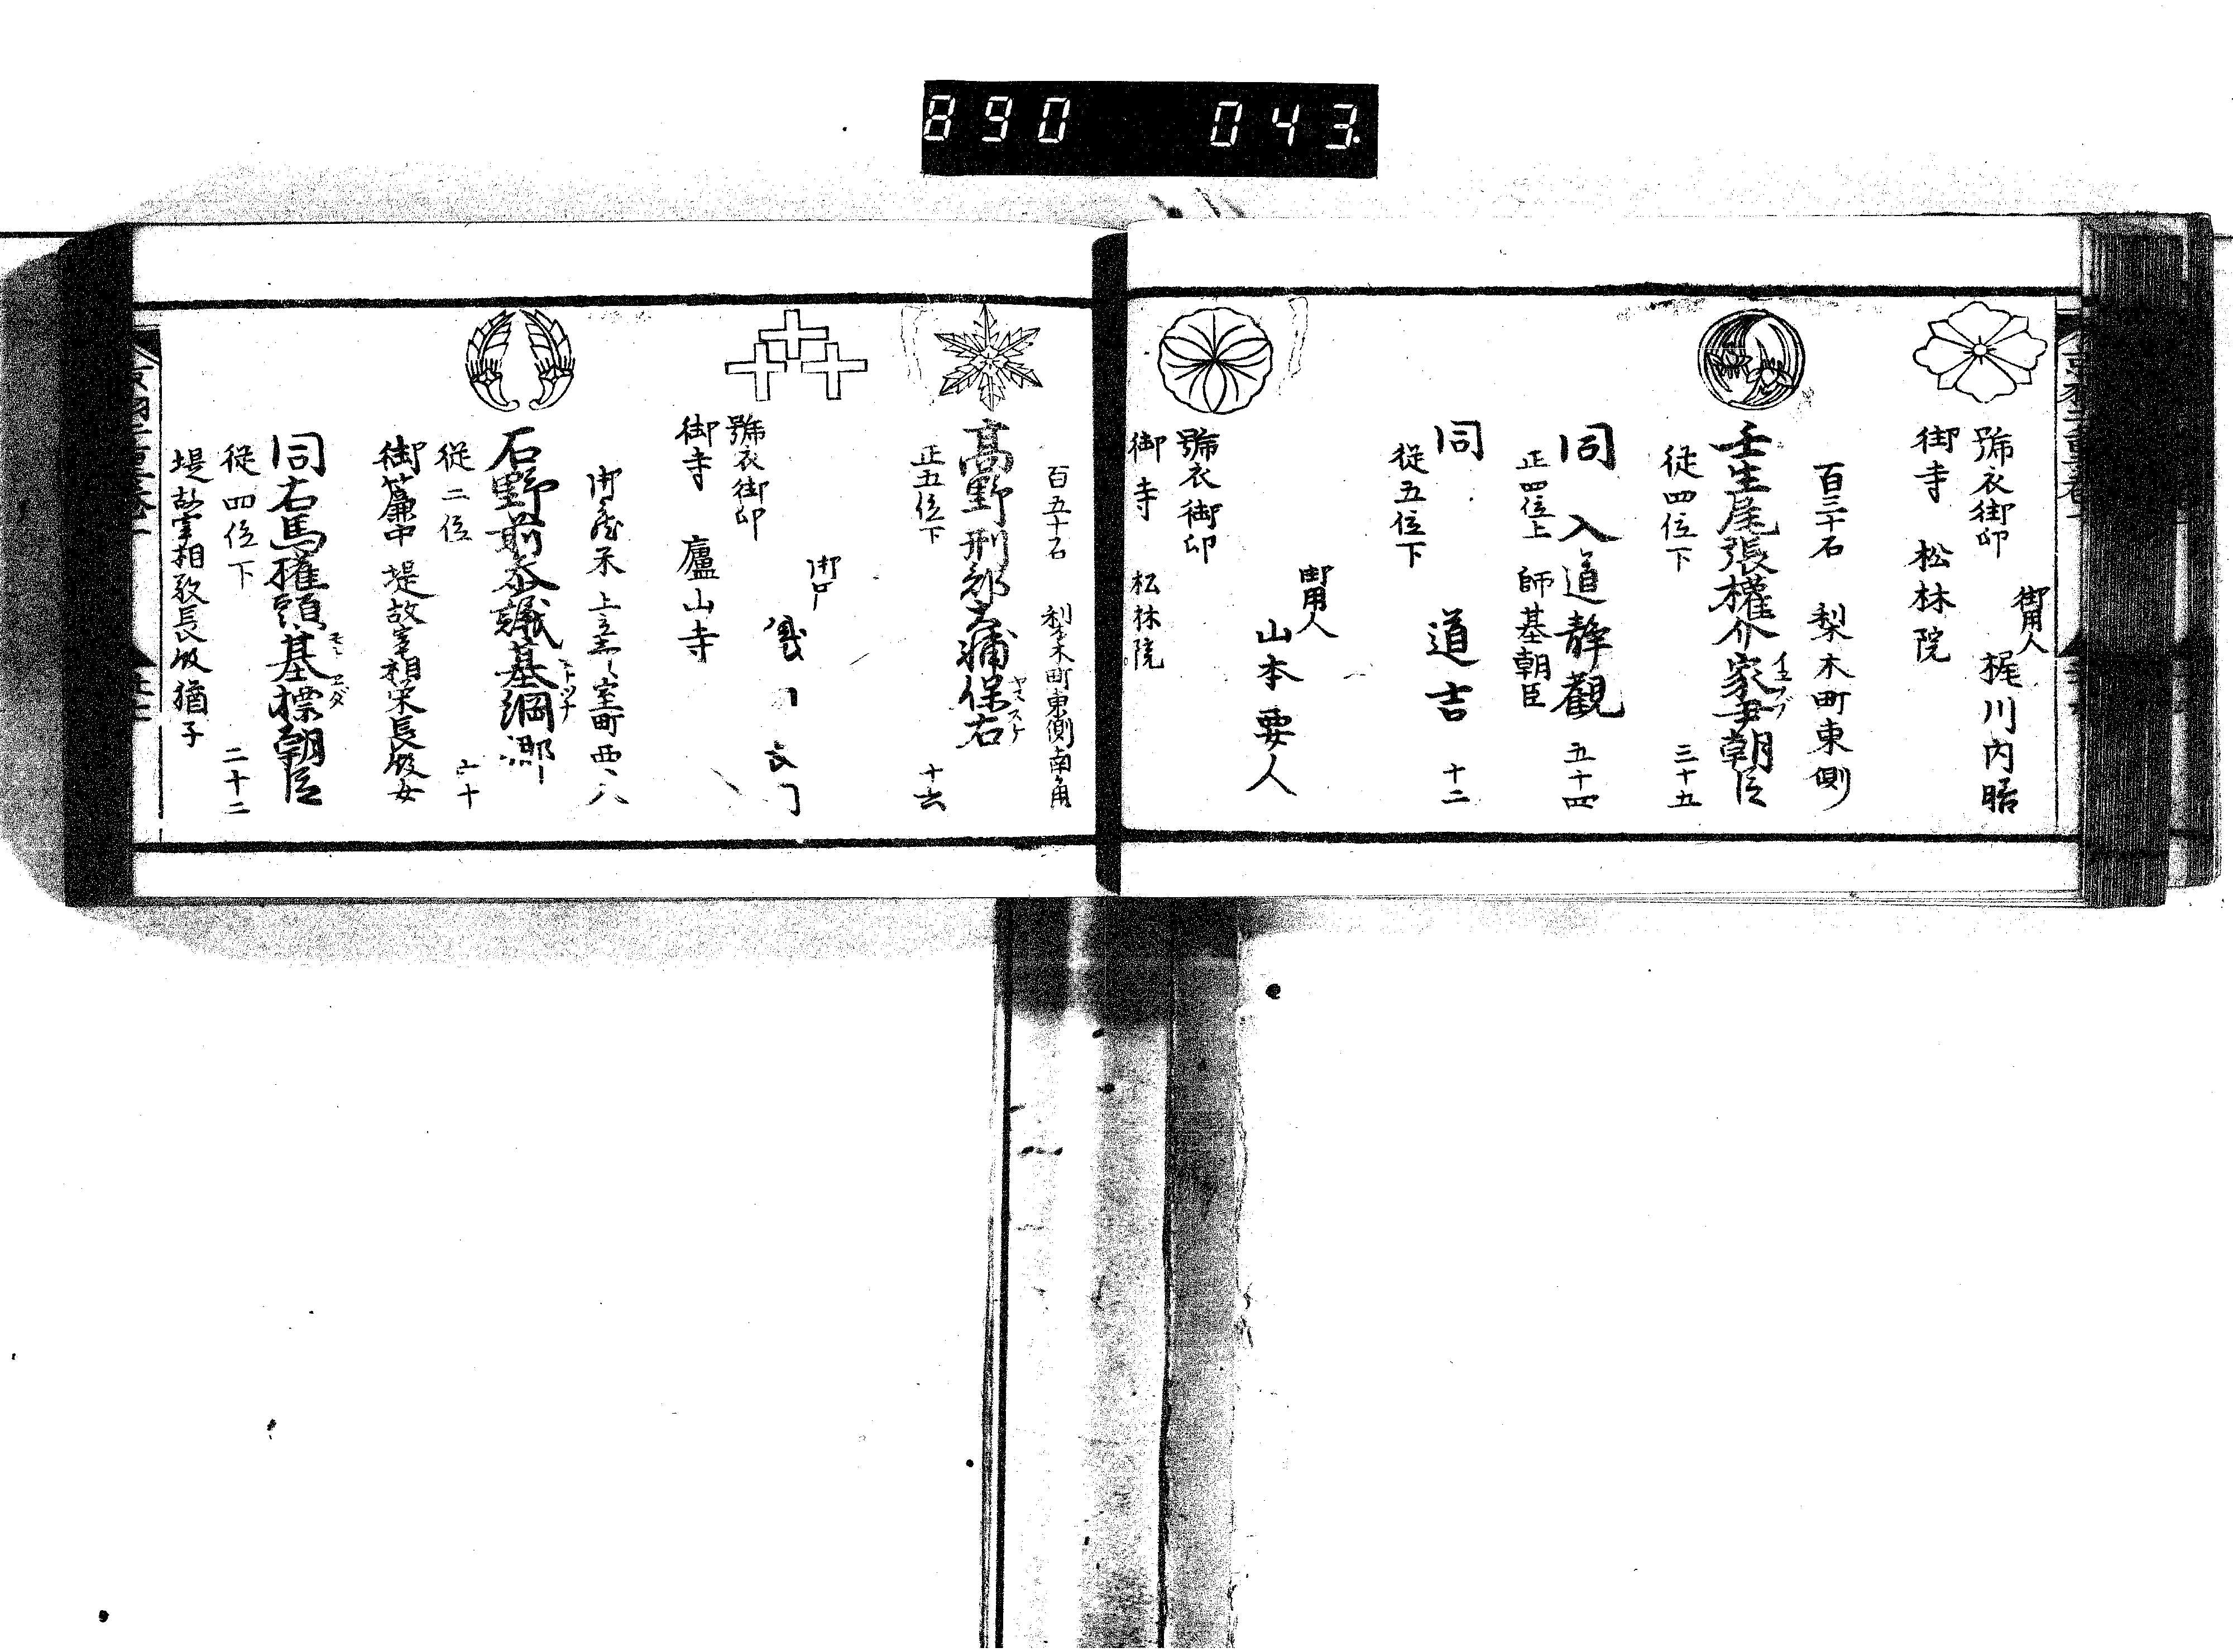 890 043
御用人
梶川内
號衣御印
御寺 松林院
百三十石 梨木町東側
壬生尾張權介家尹朝臣
イエタヾ
從四位下 三十九
同 入道靜觀 五十四
正四位上 師基朝臣
同 道吉 十二
從五位下
御用人
山本要人
號衣御印
御寺 松林院
百五十石 梨木町東側南角
高野刑部大輔保右
ヤススケ
正五位下 十六
號衣御印
御寺 廬山寺
室町西へ
石野前參議基綱卿
モトツナ
從二位 六十
御簾中 堤故宰相栄長卿女
同右馬權頭基標朝臣
モトエダ
從四位下 二十二
堤故宰相敬長卿猶子